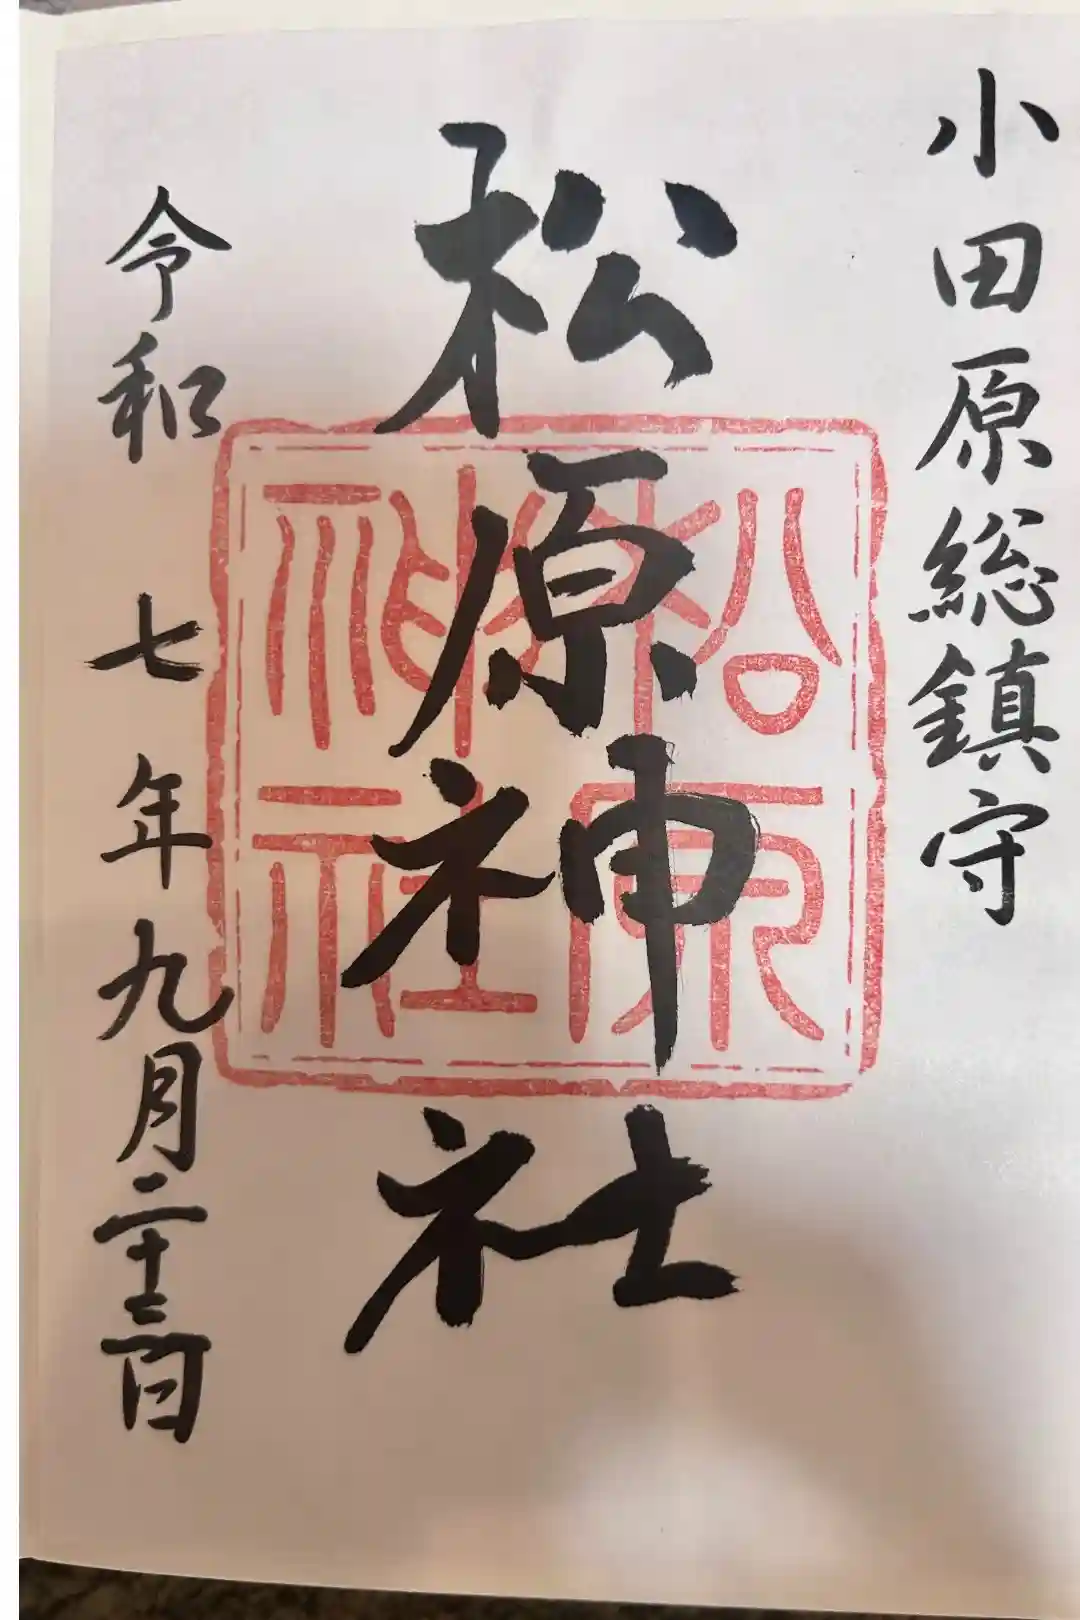 小田原総鎮守
松原神社
松原神社
令和七年九月二十三日